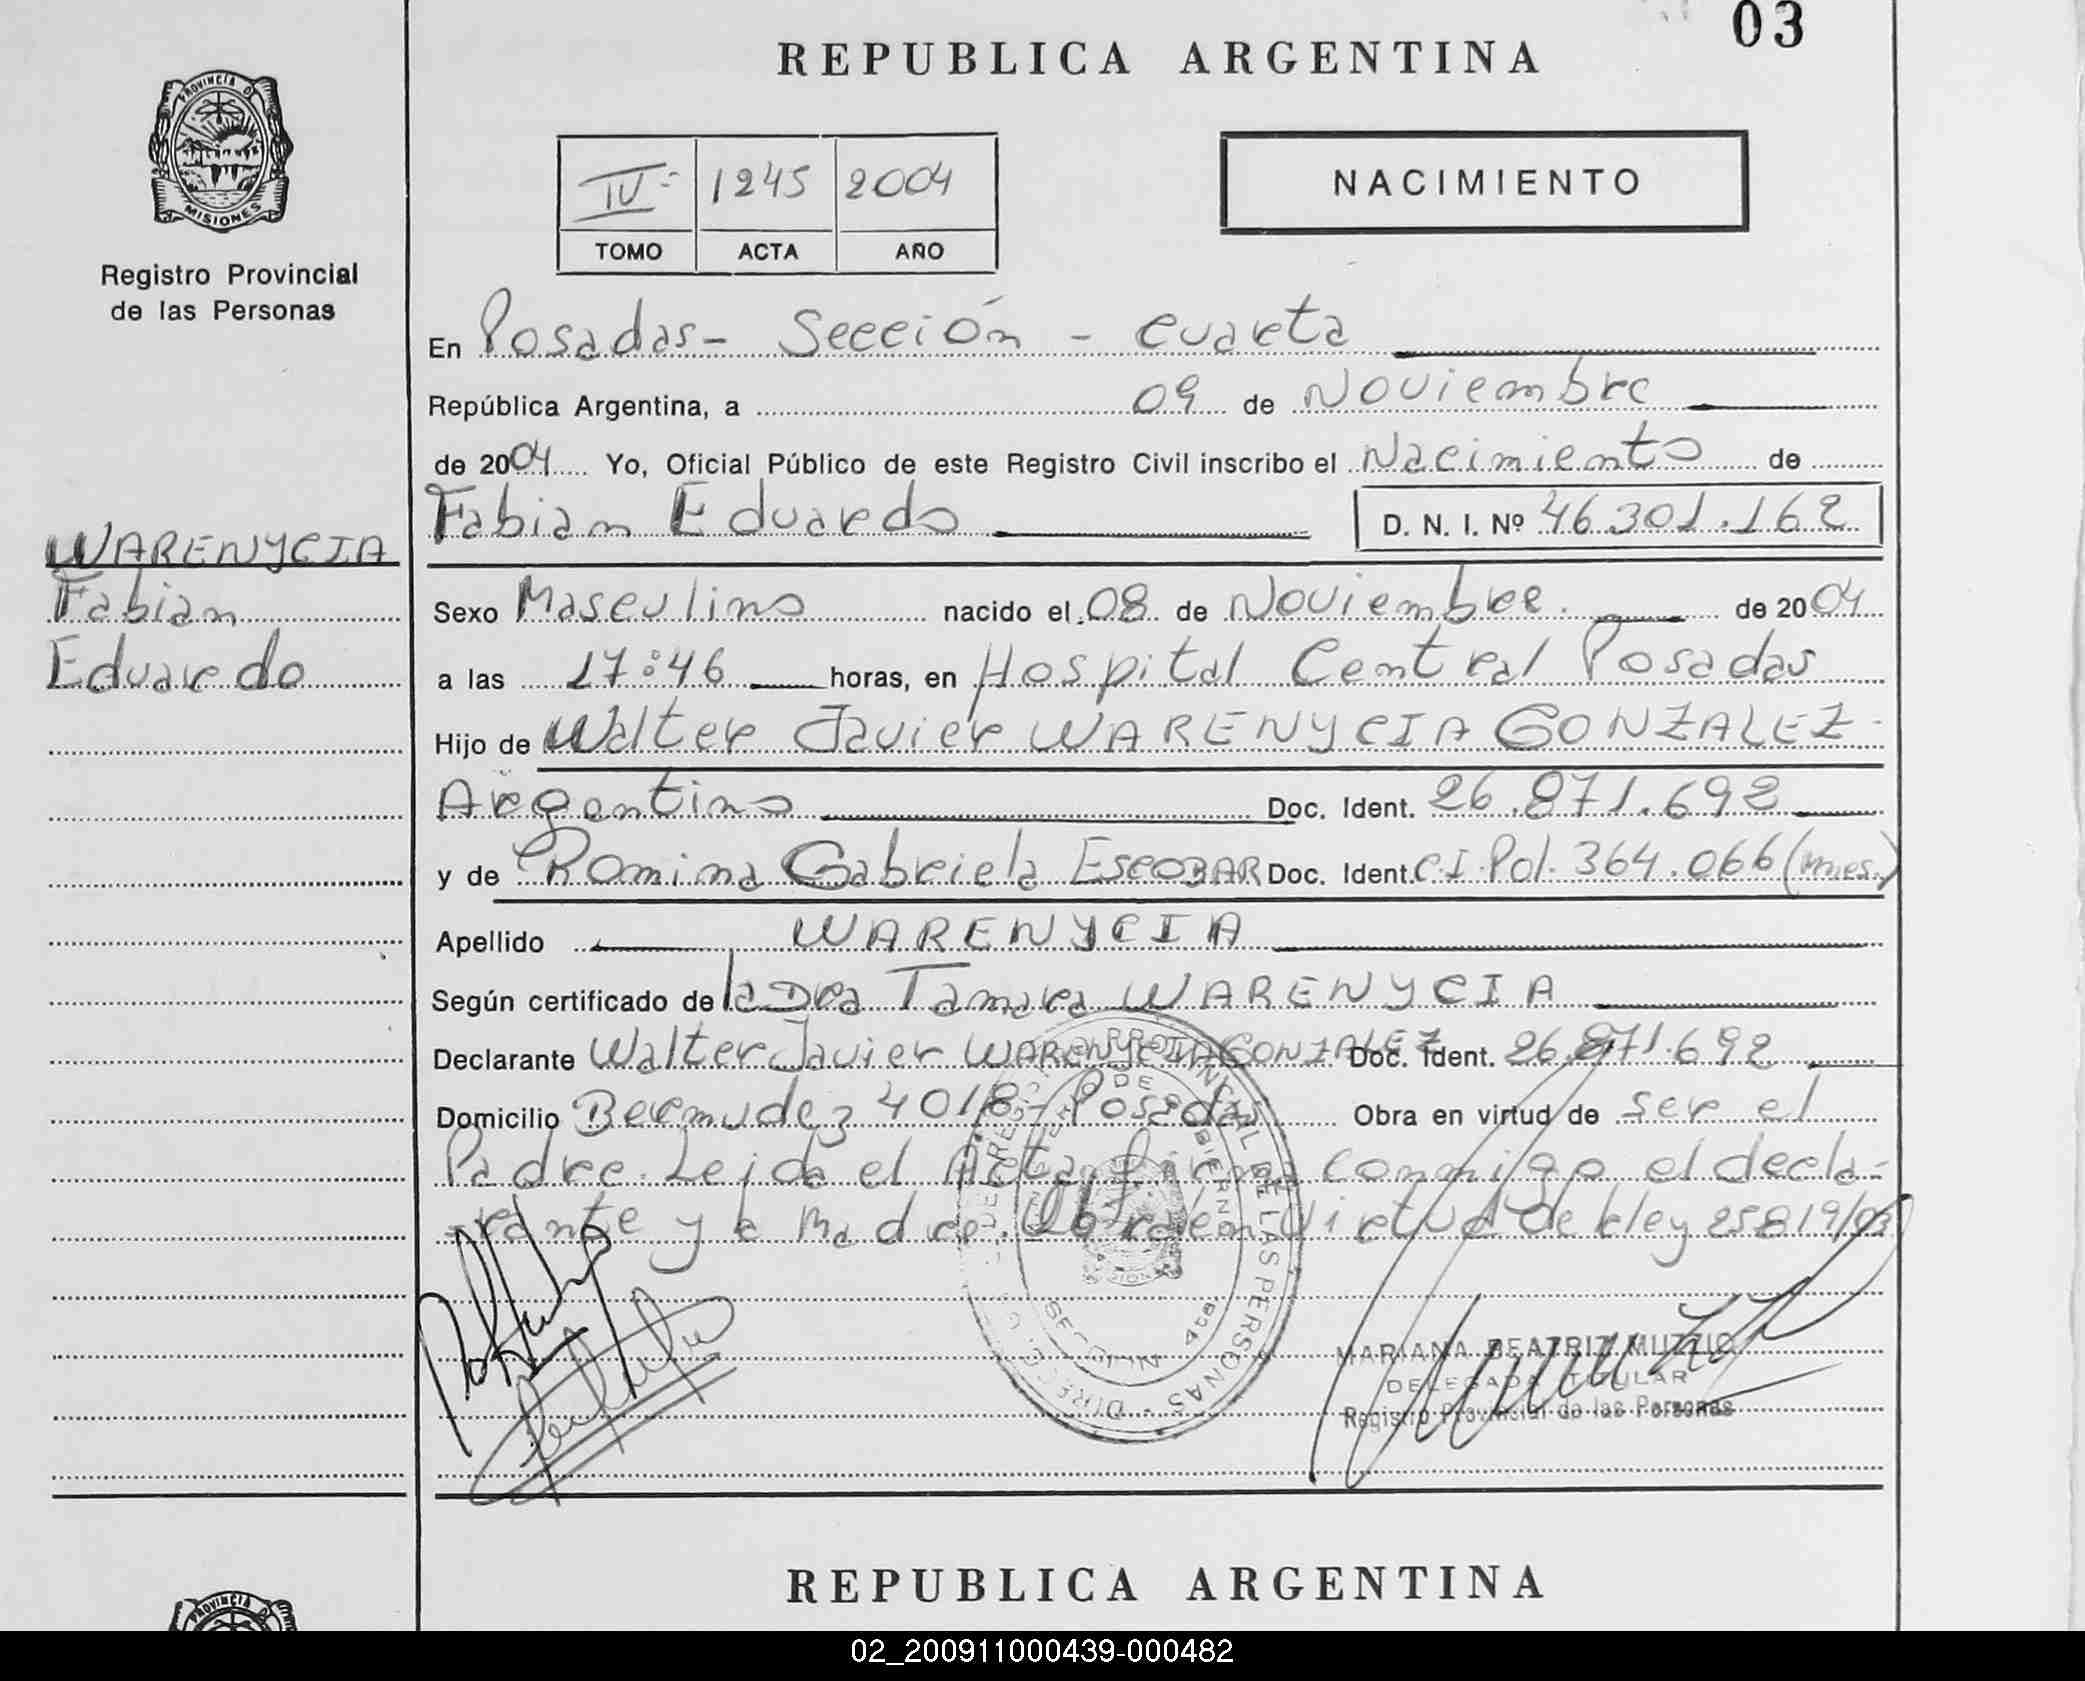 03
REPUBLICA ARGENTINA
PROVINCIA D
MISIONES
Registro Provincial
de las Personas
IV 1245 2004
TOMO ACTA AÑO
NACIMIENTO
En Posadas - Sección - Cuarta
República Argentina, a 09 de Noviembre
de 2004 Yo, Oficial Público de este Registro Civil inscribo el Nacimiento de
Fabian Eduardo D. N. I. Nº 46.301.162
WARENYCIA
Fabian
Eduardo
Sexo Masculino nacido el 08 de Noviembre de 2004
a las 17:46 horas, en Hospital Central Posadas
Hijo de Walter Javier WARENYCIA GONZALEZ
Argentino Doc. Ident. 26.871.692
y de Romina Gabriela ESCOBAR Doc. Ident. C.I. Pol. 364.066 (mnes.)
Apellido WARENYCIA
Según certificado de la Dra Tamara WARENYCIA
Declarante Walter Javier WARENYCIA GONZALEZ Doc. Ident. 26.871.692
Domicilio Bermudez 4018 - Posadas Obra en virtud de ser el
Padre. Leida el Acta firma conmigo el decla-
rante y la Madre. Obra en virtud de la ley 25819/03
MARIANA BEATRIZ MUZZIO
DELEGADA TITULAR
Registro Provincial de las Personas
REPUBLICA ARGENTINA
PROVINCIA D
02_200911000439-000482